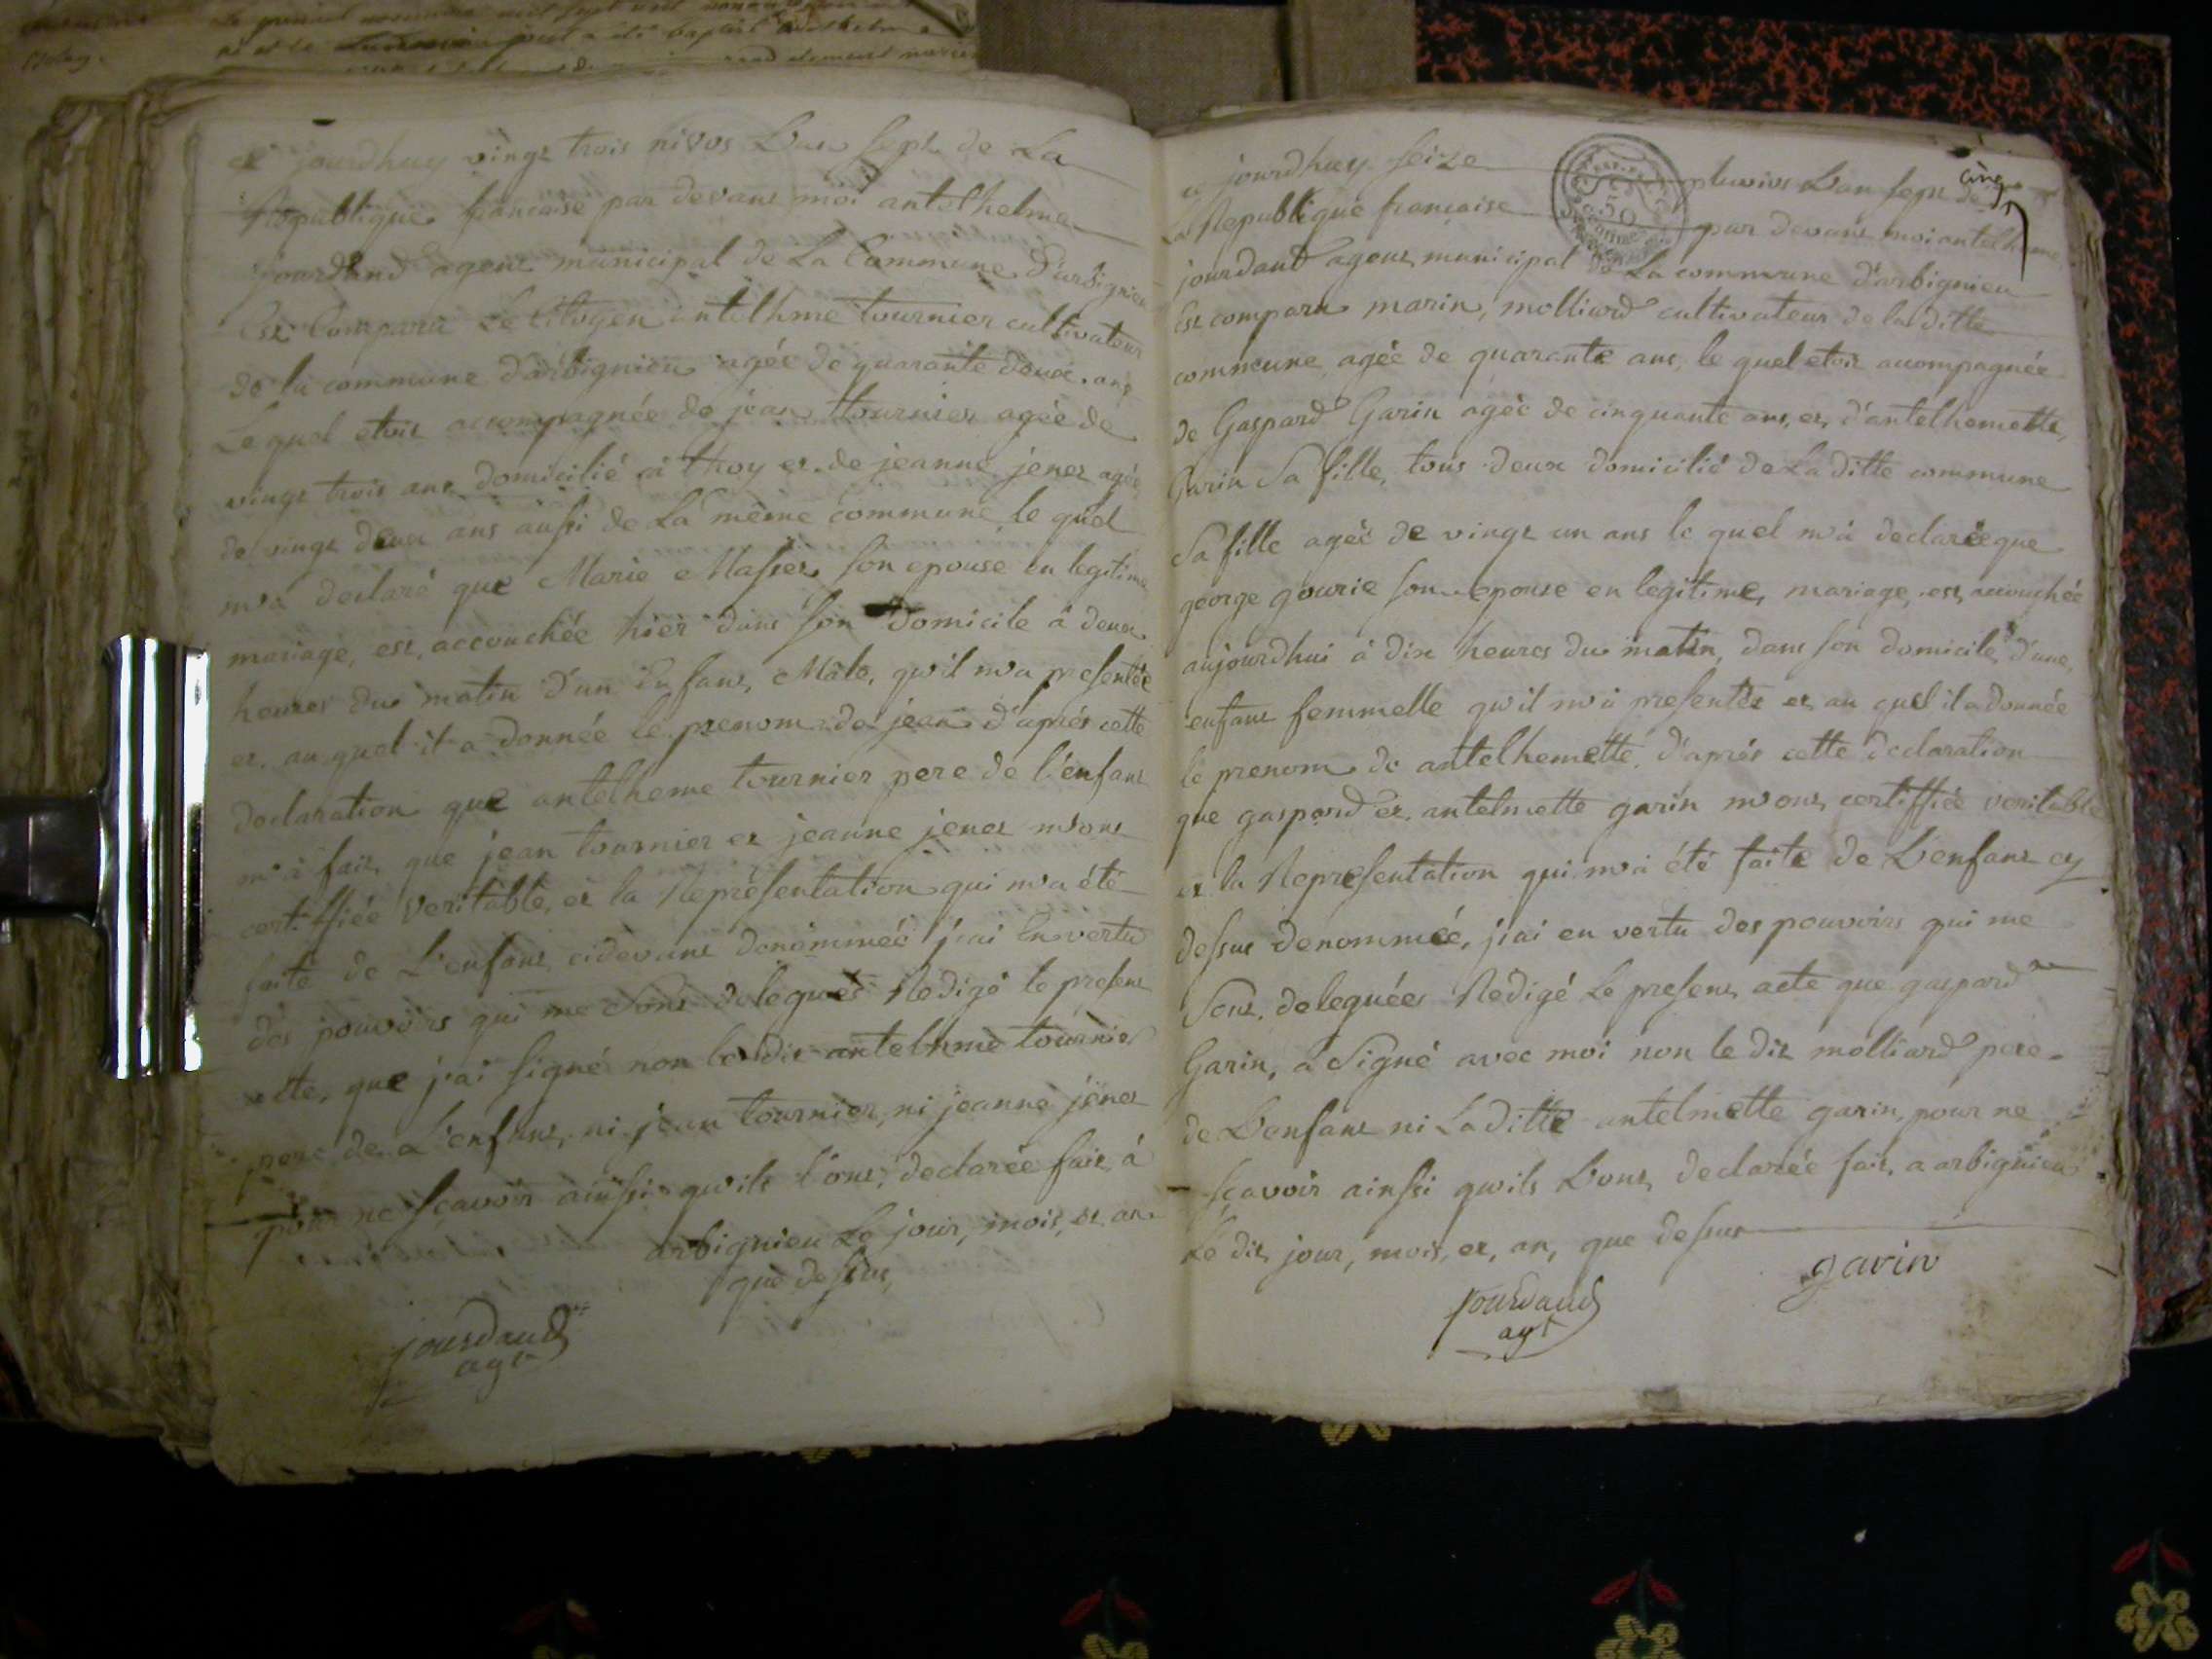 ce jourdhuy vingt trois nivos L'an sept de La
Republique francaise par devant moi antelhelme
jourdand agent municipal de La Commune d'arbignieu
Est Comparu Le Citoyen antelhme tournier cultivateur
de la commune d'arbignieu agée de quarante deux ans
Le quel etoit accompagnée de jean tournier agée de
vingt trois ans domicilié à thoy et de jeanne jenet agée
de vingt deux ans aussi de La même commune le quel
m'a declaré que Marie Masset son epouse en legitime
mariage, est accouchée hier dans son domicile à deux
heures du matin d'un Enfant Mâle, qu'il m'a presentée
et au quel il a donnée le prenom de jean d'aprés cette
declaration que antelheme tournier pere de l'enfant
m'à fait, que jean tournier et jeanne jenet m'ont
certiffiée Veritable, et la Représentation qui m'a été
faite de L'enfant cidevant denommée j'ai En vertu
des pouvoirs qui me Sont delegués Redigé le present
acte, que j'ai signé non le dit antelhme tournier
pere de L'enfant, ni jean tournier, ni jeanne jenet
pour ne sçavoir ainssi qu'ils l'ont declarée fait à
arbignieu Le jour, mois, et an
que dessus,
jourdand
agt
ce jourdhuy seize pluvios L'an sept de
cinq
La Republique francaise par devant moi antelheme
jourdand agent municipal de La commune d'arbignieu
Est comparu marin, molliard cultivateur de la ditte
commune agée de quarante ans, le quel etoit accompagnée
de Gaspard Garin agée de cinquante ans, et d'antelhemette
Garin Sa fille, tous deux domicilié de La ditte commune
Sa fille agée de vingt un ans le quel m'à declarée que
george gourie son epouse en legitime, mariage, est accouchée
aujourdhui à dix heures du matin, dans son domicile d'une
enfant femmelle qu'il m'à presentée et au quel il a donnée
le prenom de antelhemette, d'aprés cette declaration
que gaspard et antelmette garin m'ont certiffiée veritable
et la Representation qui m'à été faite de L'enfant cy
dessus denommée, j'ai en vertu des pouvoirs qui me
Sont deleguées Redigé Le present acte que gaspard
Garin, a Signé avec moi non le dit molliard pere
de L'enfant ni La ditte antelmette garin, pour ne
sçavoir ainssi qu'ils L'ont declarée fait a arbignieu
Le dit jour, mois, et, an, que dessus
garin
jourdand
agt